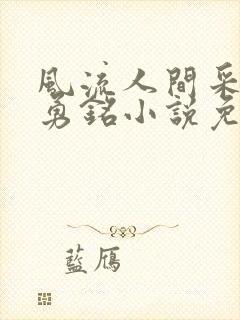 風流人間采
勇銘小說免
藍鳫